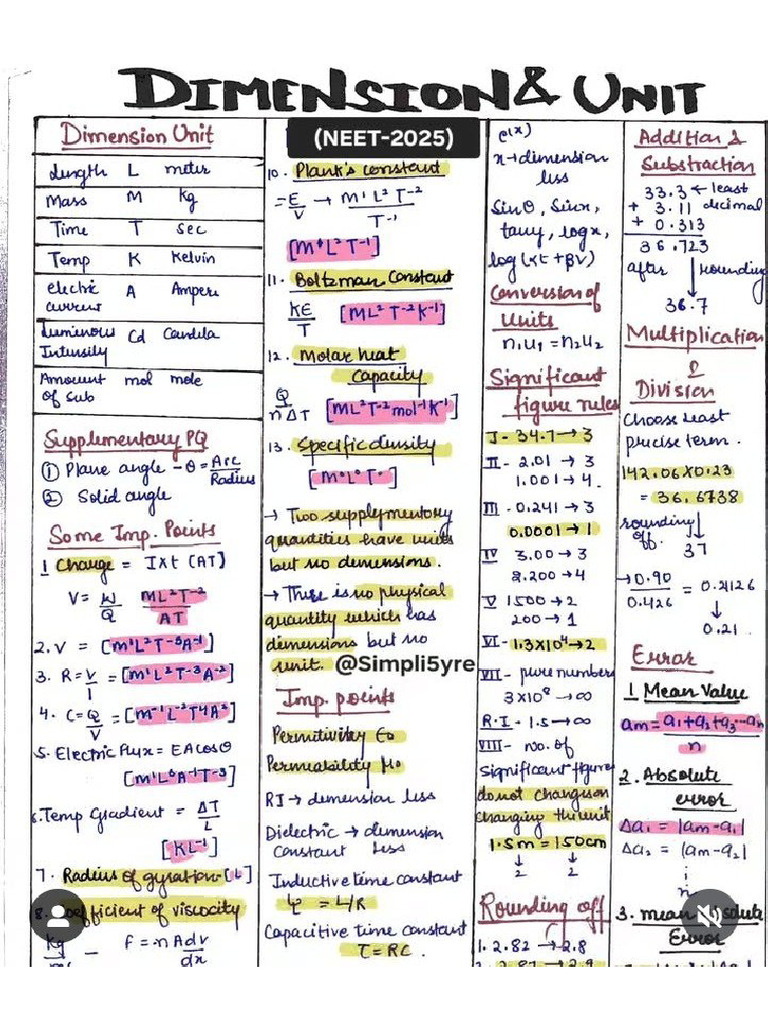 DIMENSION & UNIT
(NEET-2025)
Dimension Unit
Length L meter
Mass M Kg
Time T Sec
Temp K Kelvin
electric current A Ampere
Luminous Intensity Cd Candela
Amount of Sub mol mole
Supplementary PQ
① Plane angle - θ = Arc/Radius
② Solid angle
Some Imp. Points
1 Charge = I×t (AT)
V = W/Q ML²T⁻²/AT
2. V = [M¹L²T⁻³A⁻¹]
3. R = V/I = [M¹L²T⁻³A⁻²]
4. C = Q/V = [M⁻¹L⁻²T⁴A²]
5. Electric flux = EA cosθ
6. Temp Gradient = ΔT/L
[KL⁻¹]
7. Radius of gyration - [L]
8. Coefficient of viscocity
F = η A dv/dx
10. Plank's constant
= E/V → M¹L²T⁻²/T⁻¹
[M¹L²T⁻¹]
11. Boltzman Constant
KE/T [ML²T⁻²K⁻¹]
12. Molar heat
Capacity
Q/nΔT [ML²T⁻²mol⁻¹K⁻¹]
13. Specific density
[M⁰L⁰T⁰]
→ Two supplymentory
quantities have units
but no demensions.
→ There is no physical
quantity which has
dimensions but no
unit.
@Simpli5yre
Imp. points
Permitivity ε₀
Permeability μ₀
RI → dimension less
Dielectric → dimension
Constant less
Inductive time constant
τ = L/R
Capacitive time constant
τ = RC.
e(x)
x → dimension
less
Sinθ, Sinx,
tany, logx,
log(αt + βv)
Conversion of
Units
n₁u₁ = n₂u₂
Significant
figure rules
I - 34.7 → 3
II - 2.01 → 3
1.001 → 4.
III - 0.241 → 3
0.0001 → 1
IV 3.00 → 3
3.200 → 4
V 1500 → 2
200 → 1
VI - 1.3×10⁴ → 2
VII - pure numbers
3×10⁸ → ∞
R.I - 1.5 → ∞
VIII - no. of
Significant figure
do not change on
changing the unit
1.5m = 150cm
↓ ↓
2 2
Rounding off
1. 2.82 → 2.8
Addition &
Substraction
33.3 ← least
+ 3.11 decimal
+ 0.313
36.723
after ↓ rounding
36.7
Multiplication
&
Division
Choose least
precise term.
142.06×0.23
= 36.6738
rounding
off. ↓
37
→ 0.90/0.426 = 0.2126
↓
0.21.
Error
1 Mean Value
am = a₁+a₂+a₃...aₙ/n
2. Absolute
error
Δa₁ = |am-a₁|
Δa₂ = |am-a₂|
n
3. mean Absolute
Error